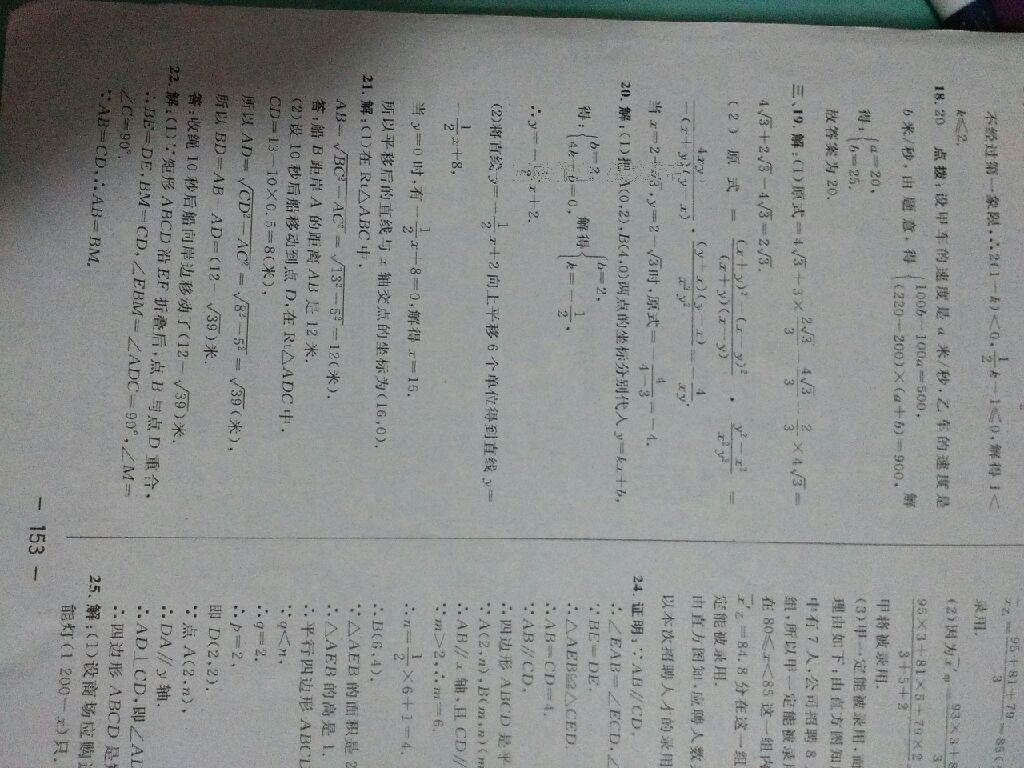 不经过第一象限,∴2(1-k)<0,1/2k-1≤0,解得1<
k≤2.
18. 20 点拨:设甲车的速度是a米/秒,乙车的速度是
b米/秒,由题意,得{100b-100a=500, (220-200)×(a+b)=900, 解
得:{a=20, b=25.
故答案为20.
三、19. 解:(1)原式=4√3+3×2√3/3-4√3/3-2/3×4√3=
4√3+2√3-4√3=2√3.
(2)原式=(x+y)²-(x-y)²/(x+y)(x-y)·y²-x²/x²y²=
-4xy/(x+y)(y-x)·(y+x)(y-x)/x²y²=-4/xy.
当x=2+√3,y=2-√3时,原式=-4/4-3=-4.
20. 解:(1)把A(0,2),B(4,0)两点的坐标分别代入y=kx+b,
得:{b=2, 4k+b=0, 解得{b=2, k=-1/2,
∴y=-1/2x+2.
(2)将直线y=-1/2x+2向上平移6个单位得到直线y=
-1/2x+8,
当y=0时,有-1/2x+8=0,解得x=16,
所以平移后的直线与x轴交点的坐标为(16,0).
21. 解:(1)在Rt△ABC中,
AB=√BC²-AC²=√13²-5²=12(米),
答:船B距岸A的距离AB是12米.
(2)设10秒后船移动到点D,在Rt△ADC中,
CD=13-10×0.5=8(米),
所以AD=√CD²-AC²=√8²-5²=√39(米),
所以BD=AB-AD=(12-√39)米.
答:收绳10秒后船向岸边移动了(12-√39)米.
22. 解:(1)∵矩形ABCD沿EF折叠后,点B与点D重合,
∴BE=DE,BM=CD,∠EBM=∠ADC=90°,∠M=
∠C=90°.
∵AB=CD,∴AB=BM.
— 153 —
95+81+79/3=85(
录用.
(2)因为x甲=93×3+8
95×3+81×5+79×2/3+5+2
甲将被录用.
(3)甲一定能被录用,而
理由如下:由直方图知
中有7人,公司招聘8
组,所以甲一定能被录用
在80≤x<85这一组内
x乙=84.8分在这一组
定能被录用.
由直方图知,应聘人数
以本次招聘人才的录用
24. 证明:∵AB∥CD,
∴∠EAB=∠ECD,∠
∵BE=DE,
∴△AEB≌△CED,
∴AB=CD=4.
∵AB∥CD,
∴四边形ABCD是平
∵A(2,n),B(m,n)(m
∴AB∥x轴,且CD∥
∵m>2,∴m=6.
∴n=1/2×6+1=4.
∴B(6,4).
∵△AEB的面积是2
∴△AEB的高是1.
∴平行四边形ABCD
∵q<n,
∴q=2.
∴p=2,
即D(2,2).
∵点A(2,n),
∴DA∥y轴.
∴AD⊥CD,即∠AD
∴四边形ABCD是矩
25. 解:(1)设商场应购进
能灯(1 200-x)只,